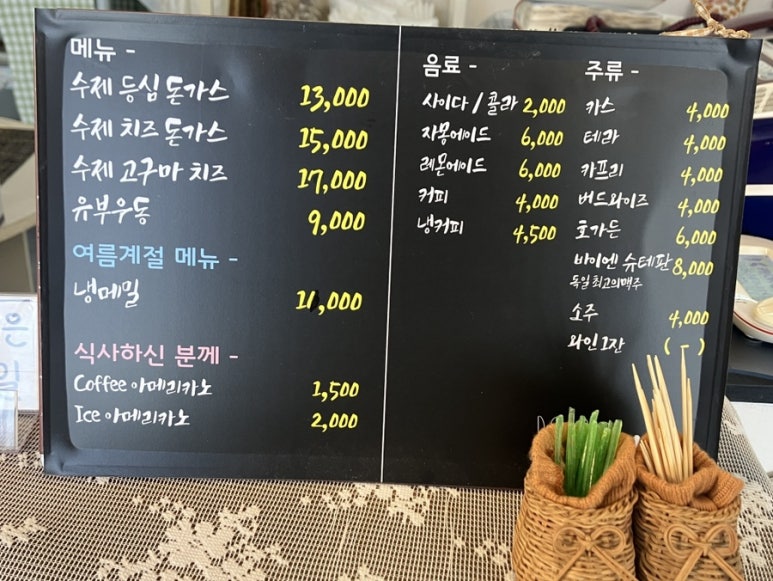 메뉴 -
수제 등심 돈가스 13,000
수제 치즈 돈가스 15,000
수제 고구마 치즈 17,000
유부우동 9,000
여름계절 메뉴 -
냉메밀 11,000
식사하신 분께 -
Coffee 아메리카노 1,500
Ice 아메리카노 2,000
음료 -
사이다 / 콜라 2,000
자몽에이드 6,000
레몬에이드 6,000
커피 4,000
냉커피 4,500
주류 -
카스 4,000
테라 4,000
카프리 4,000
버드와이즈 4,000
호가든 6,000
바이엔 슈테판 8,000
독일 최고의맥주
소주 4,000
와인 1잔 ( - )
은
일